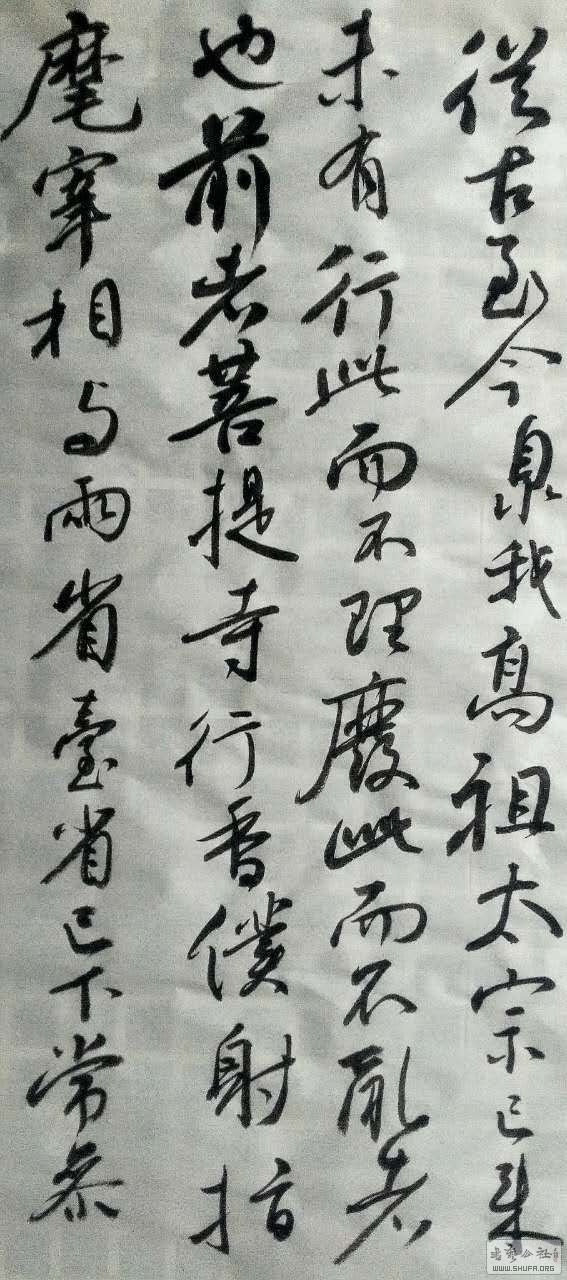 從古至今泉我高祖太宗已來
未有行此而不理廢此而不亂者
也前者菩提寺行香僕射指
麾宰相與兩省臺省已下常參
书艺公社
WWW.SHUFA.ORG